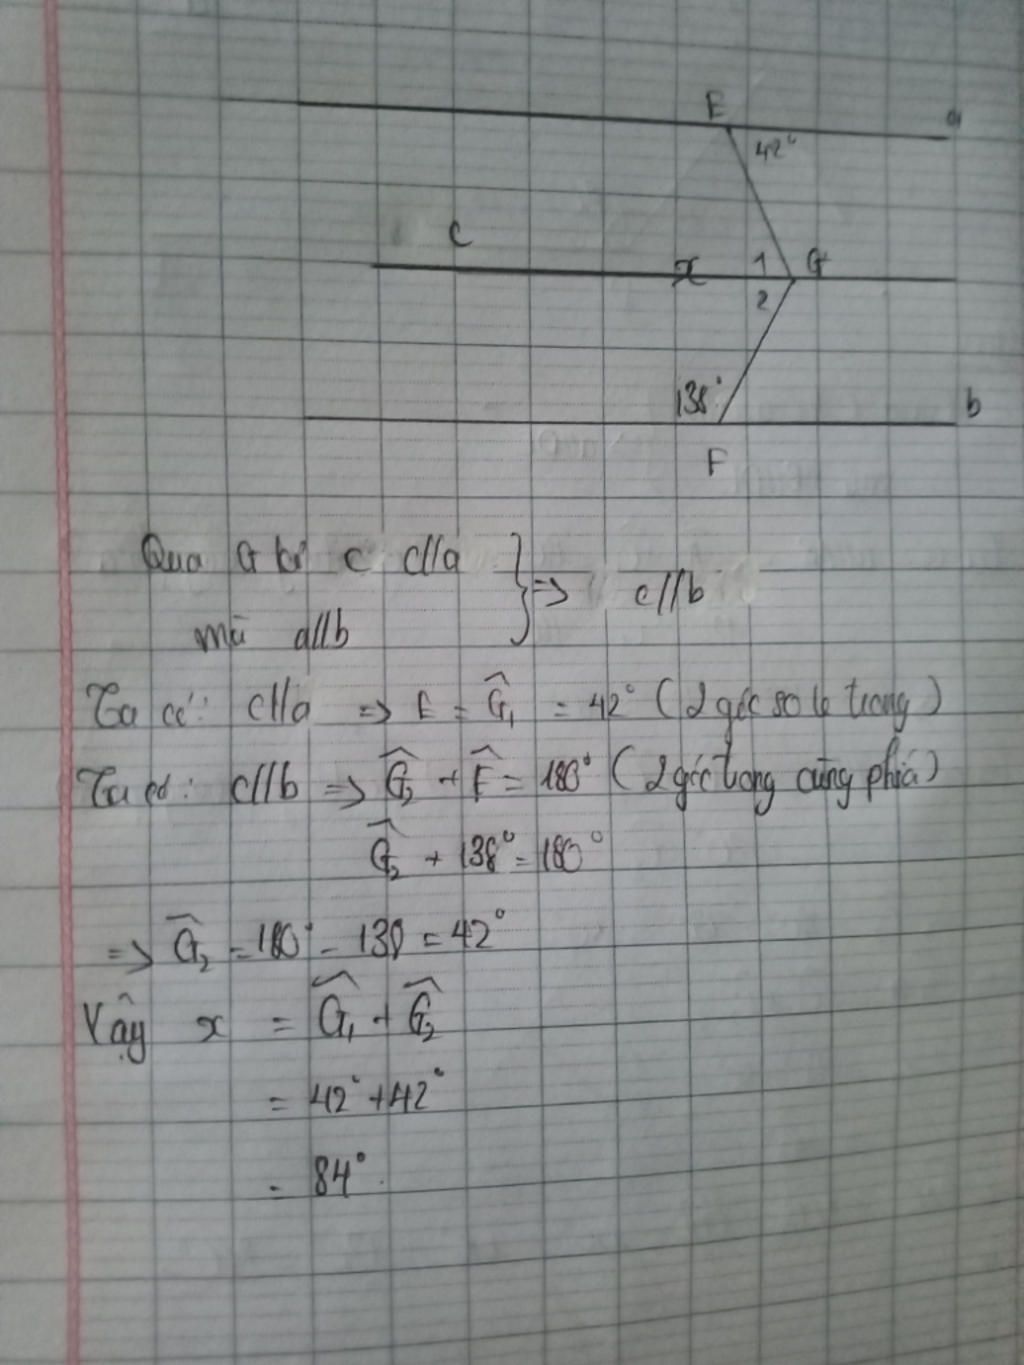 E
a
42°
c
x 1 G
2
138°
b
F
Qua G kẻ c c//a
mà a//b
} => c//b
Ta có: c//a => E = Ĝ₁ = 42° (2 góc so le trong)
Ta có: c//b => Ĝ₂ + F̂ = 180° (2 góc trong cùng phía)
Ĝ₂ + 138° = 180°
=> Ĝ₂ = 180° - 138 = 42°
Vậy x = Ĝ₁ + Ĝ₂
= 42° + 42°
= 84°.